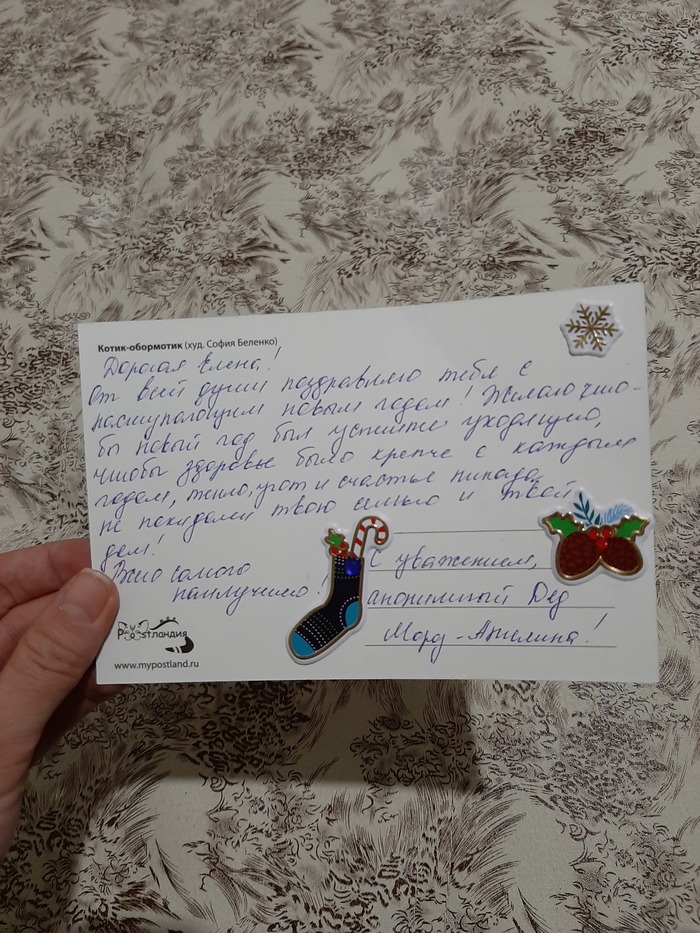 Котик-обормотик (худ. София Беленко)
Дорогая Елена!
От всей души поздравляю тебя с
наступающим новым годом! Желаю что-
бы новый год был успешнее уходящего,
чтобы здоровье было крепче с каждым
годом, тепло, уют и счастье никогда
не покидали твою семью и твой
дом!
Всего самого
наилучшего!
С уважением,
анонимный Дед
Мороз - Ангелина!
Postландия
www.mypostland.ru